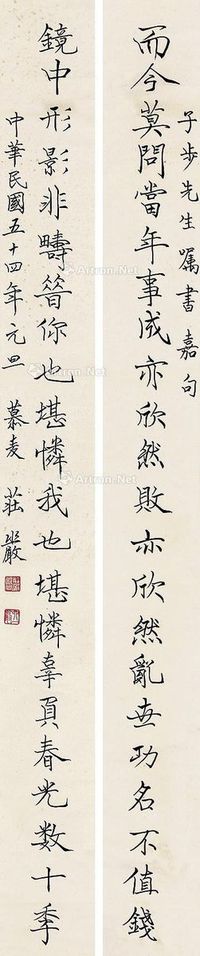 子步先生属書嘉句
而今莫問當年事成亦欣然敗亦欣然亂世功名不值錢
鏡中形影非疇昝你也堪憐我也堪憐辜負春光数十季
中華民國五十四年元旦 慕麦 莊嚴